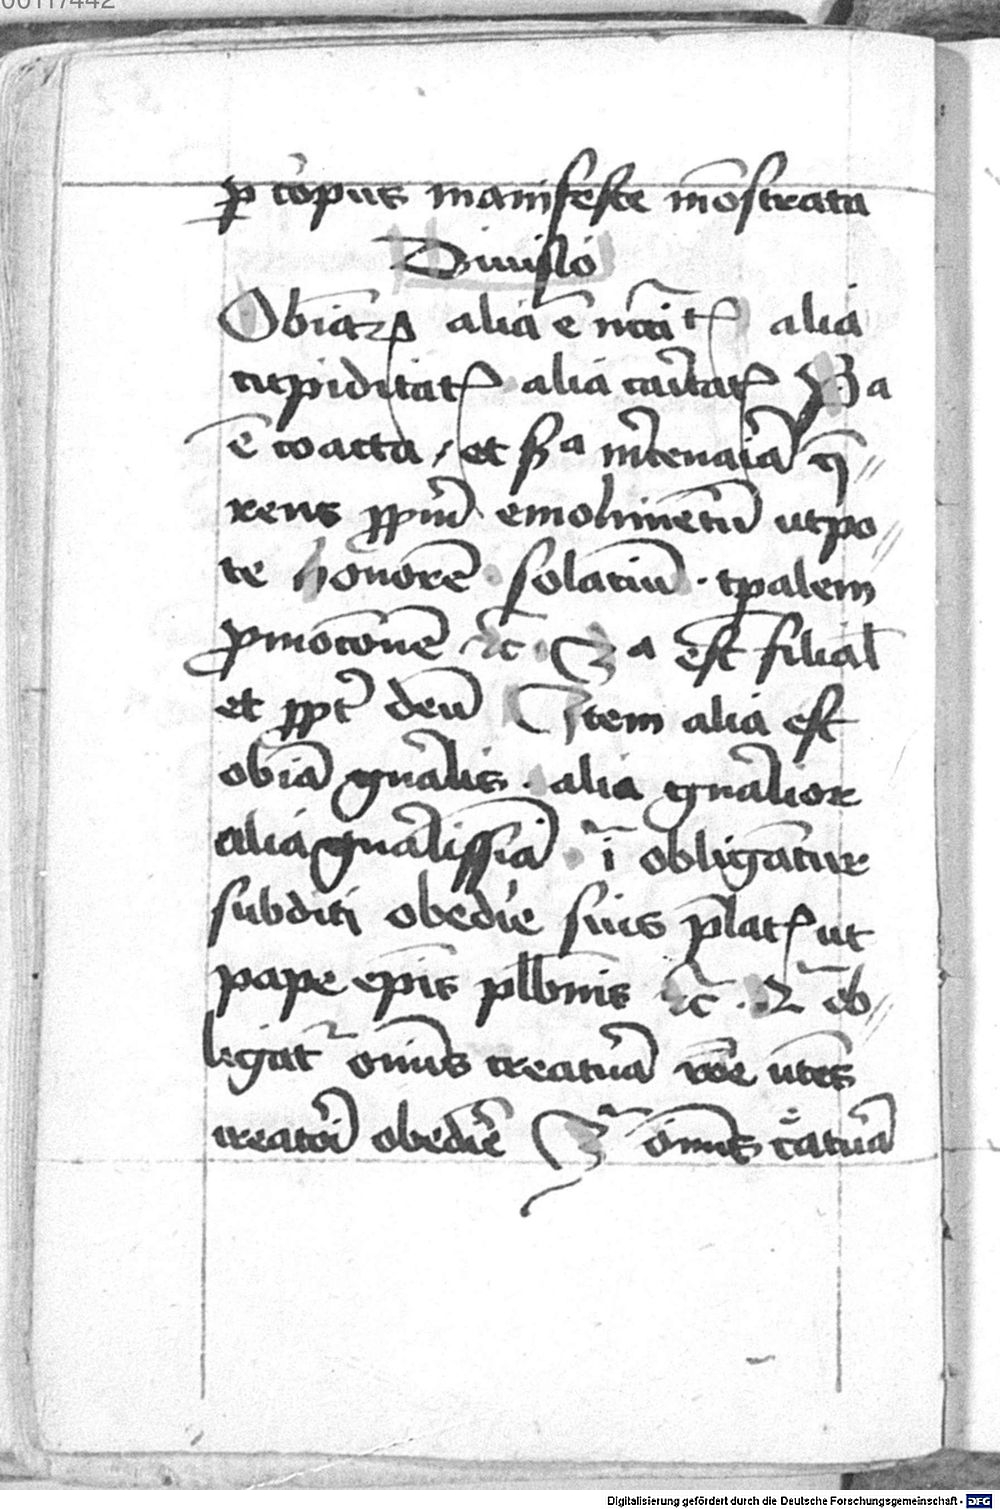 00117442
ꝑ corpus manifeste mōstrata
Diuisio
Obiarꝝ alia ē nccitatꝭ alia
cupiditatꝭ alia caritatꝭ pa
ē coacta / et sa mcenaia q̄
rens ꝓpriū emolimentū utpo
te honorē solatiū · tpalem
ꝓmocōnē ⁊c̄ 3a est filial
et ꝓpt deū Item alia est
obiā gnalis · alia gnalior
alia gnalissia · i obligātur
subditi obedie suis p̄latꝭ ut
pape ep̄is plb̄nis ⁊c̄ · 2 ob
ligat om̄is creatura rōe utēs
creatori obedire 3 om̄is catura
Digitalisierung gefördert durch die Deutsche Forschungsgemeinschaft - DFG